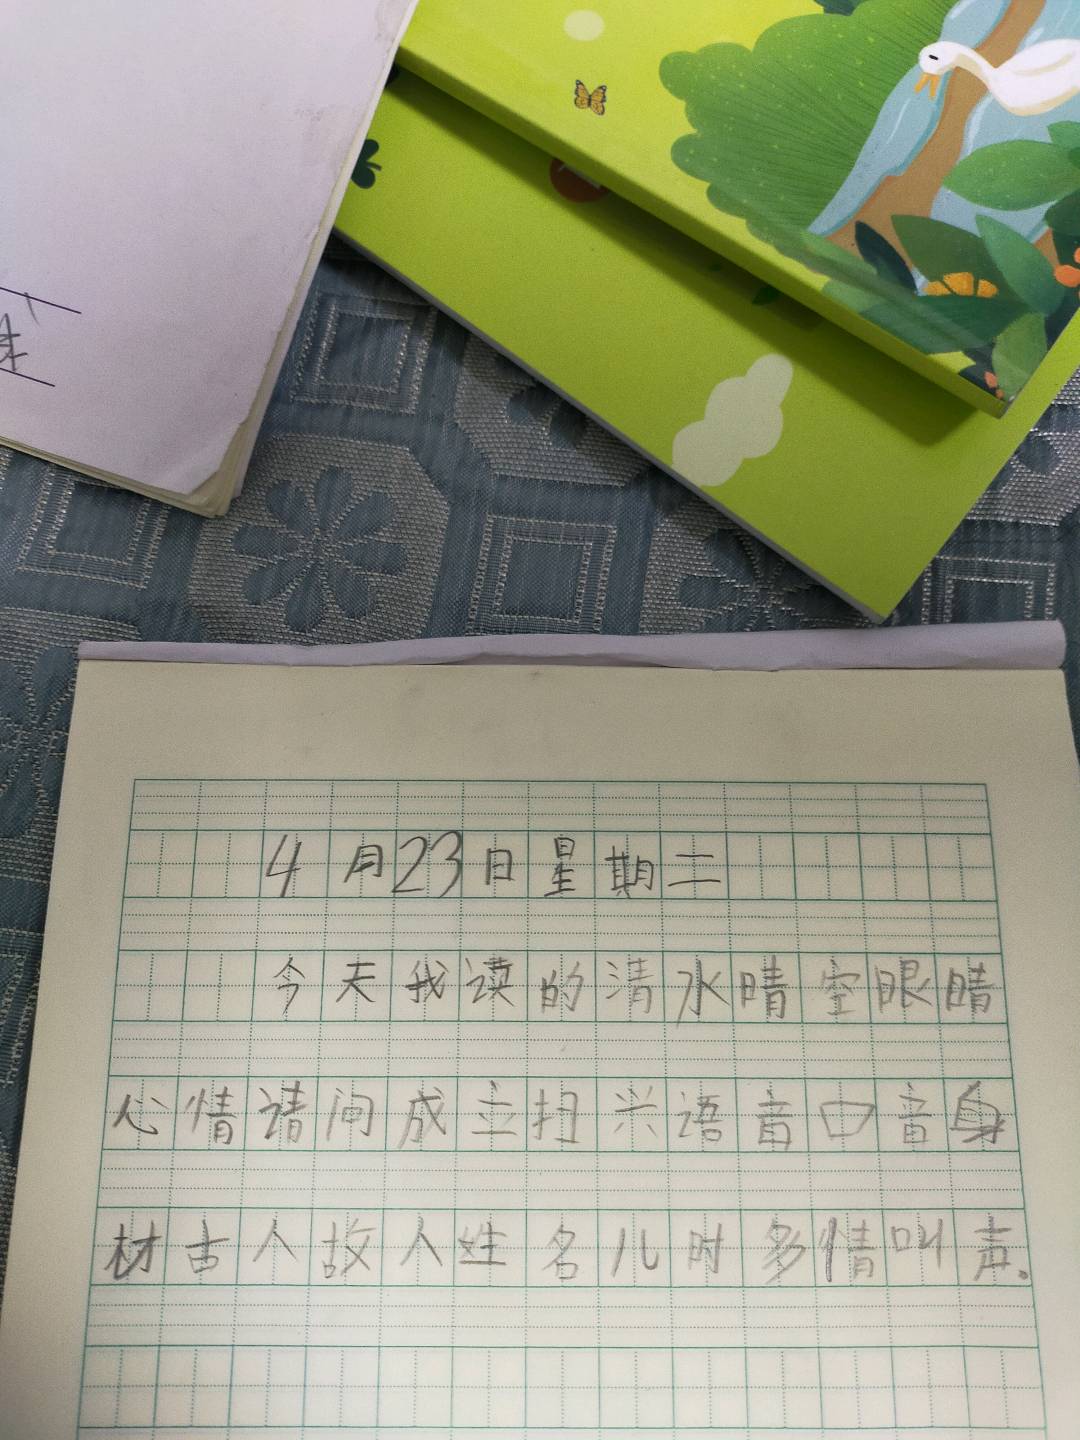 4月23日星期二
今天我读的清水晴空眼晴
心情请问成立扫兴语音口音身
材古人故人姓名儿时多情叫声。